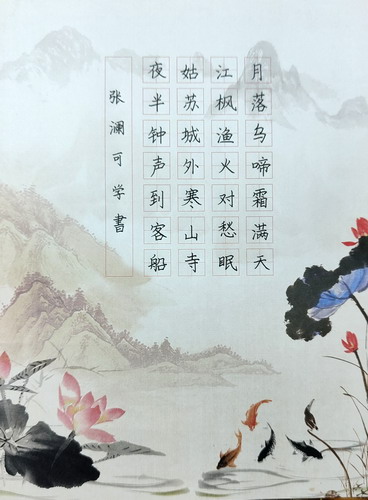 月落乌啼霜满天
江枫渔火对愁眠
姑苏城外寒山寺
夜半钟声到客船
张澜可学書